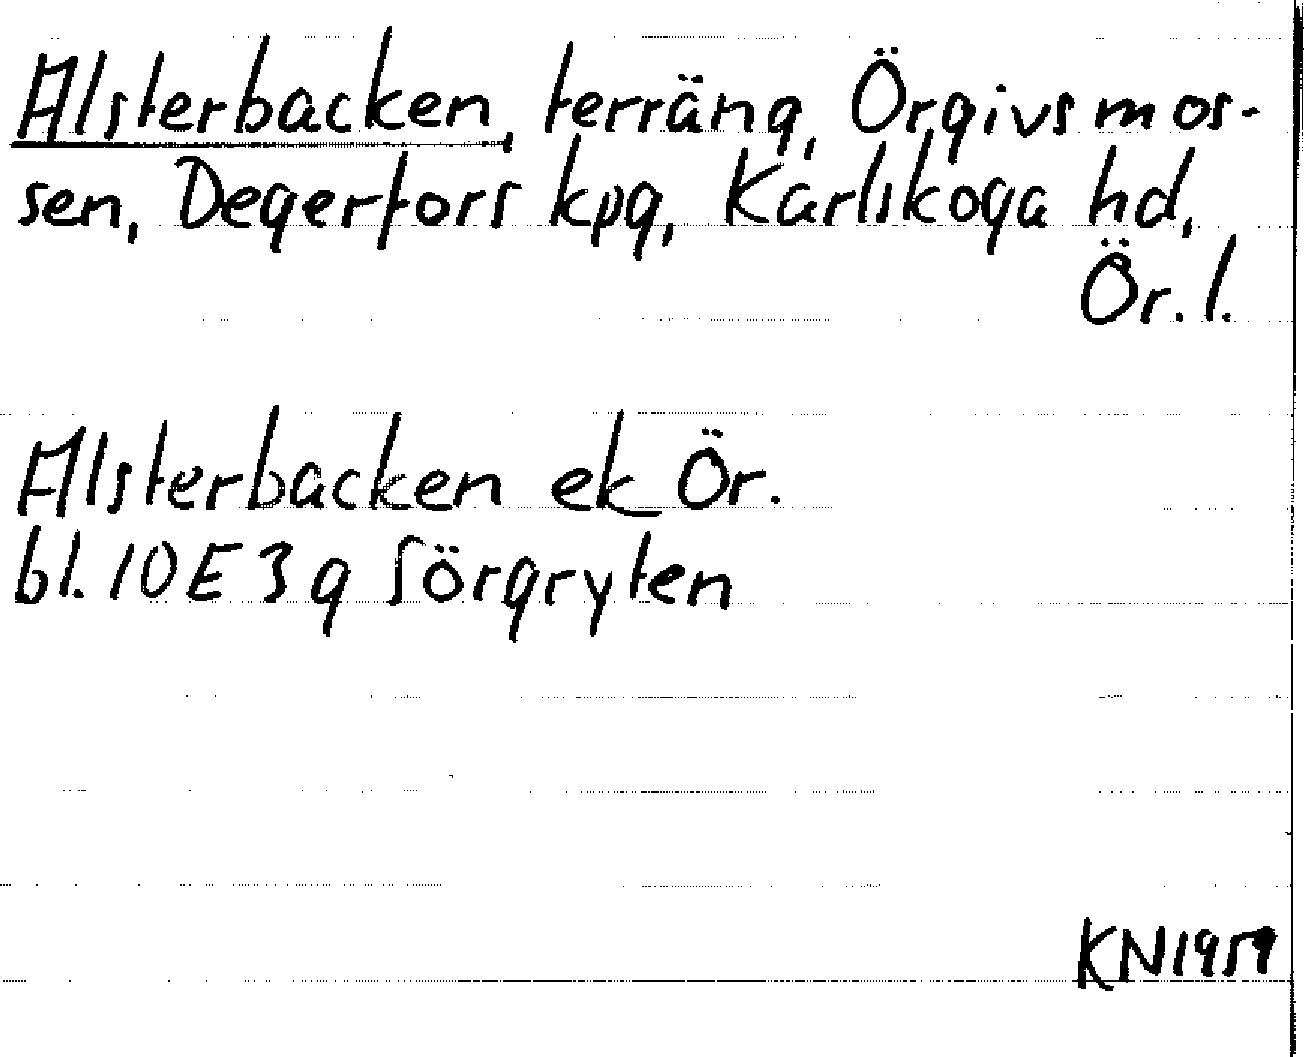 Alsterbacken, terräng, Örgivsmos-
sen, Degerfors kpg, Karlskoga hd,
Ör. l.
Alsterbacken ek Ör.
bl. 10E3g Sörgryten
KN1959